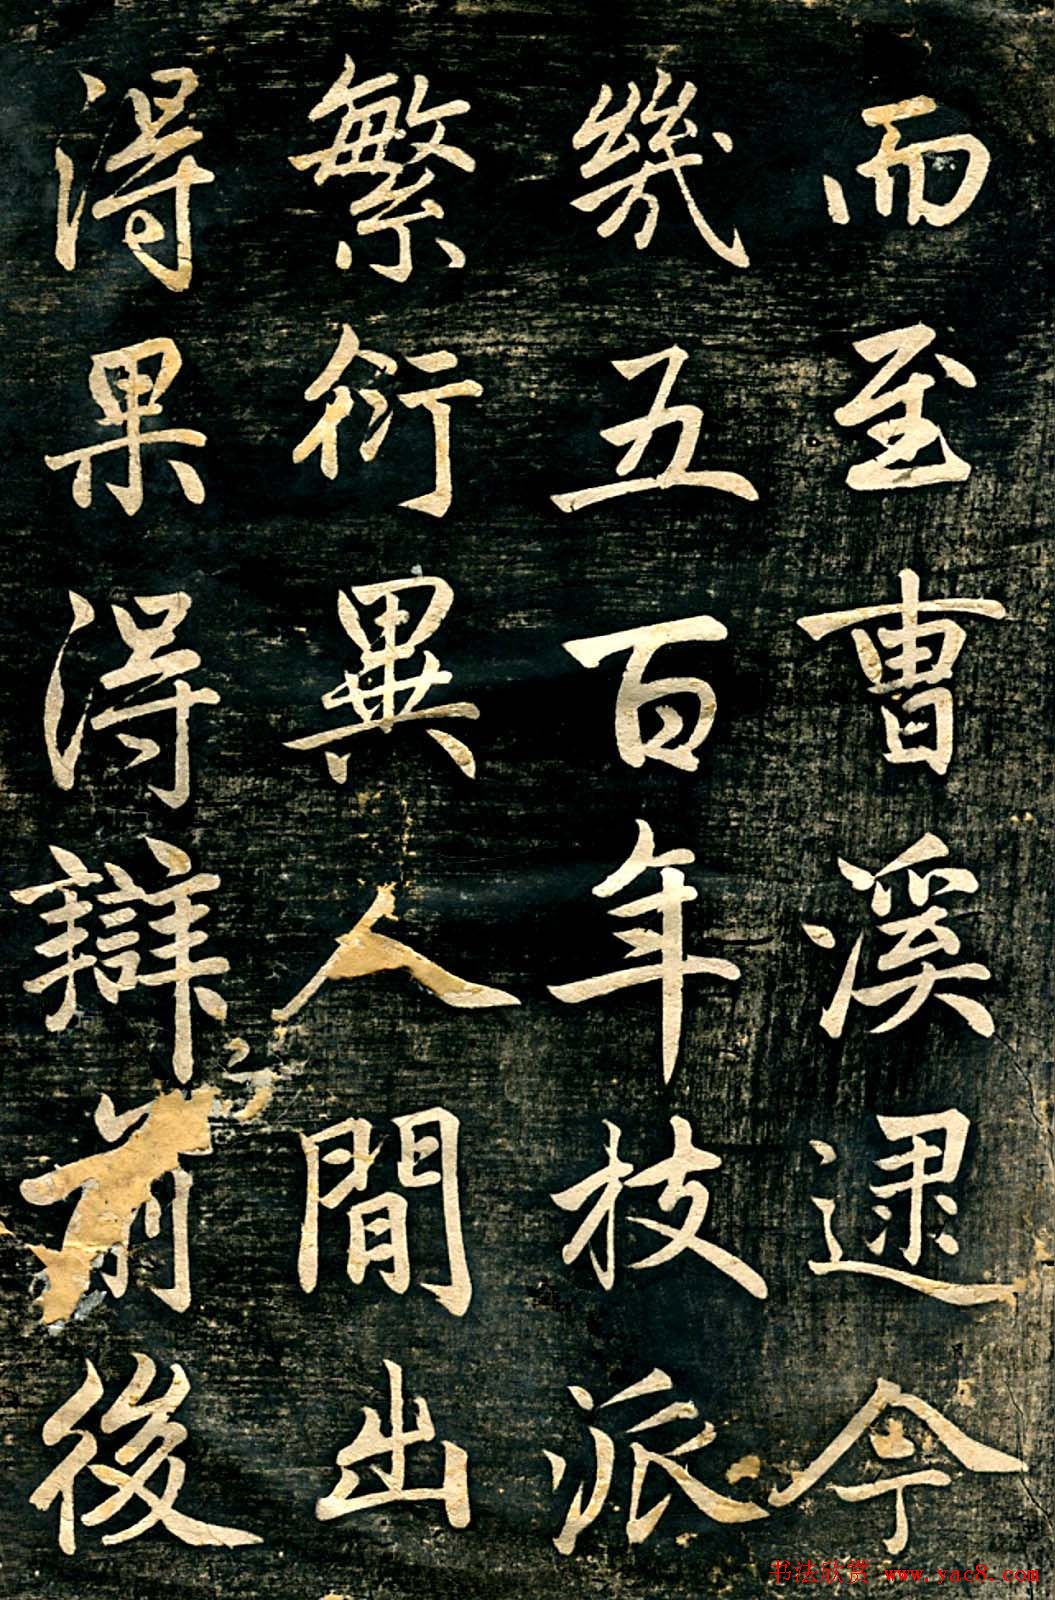 而至曹溪逮今
幾五百年枝派
繁衍異人間出
得果得辯前後
书法欣赏 www.yac8.com